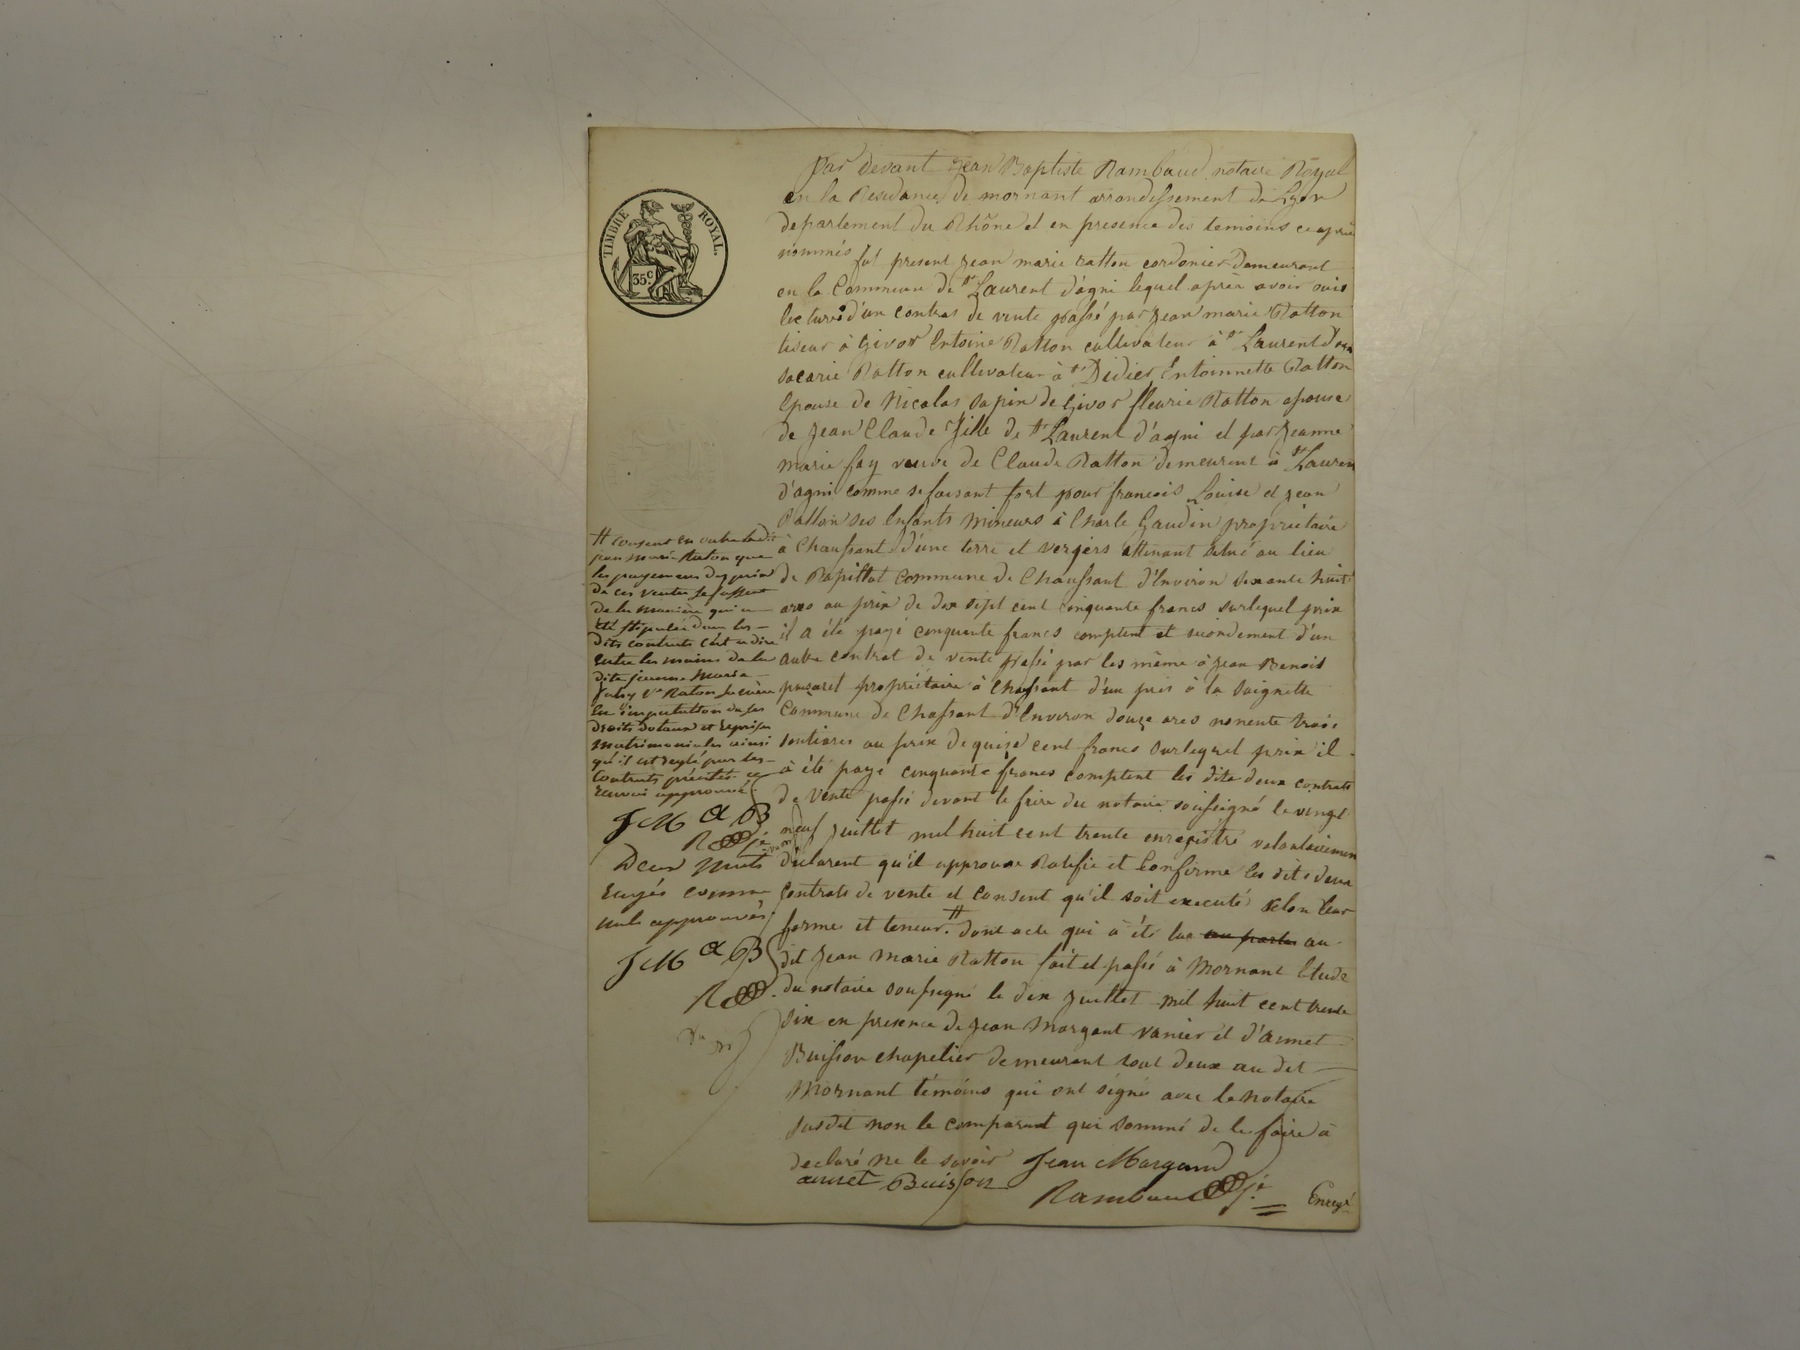 TIMBRE ROYAL.
35c.
Par devant Jean Baptiste Rambaud, notaire Royal
en la Residance de mornant arrondissement de Lyon
departement du Rhône et en presence des temoins ci après
nommés fut present Jean marie ratton cordonier demeurant
en la Commune de st Laurent d'agni lequel après avoir ouis
lecture d'un contras de vente passé par Jean marie Ratton
tiseur à Givor Entoine Ratton cultivateur à st Laurent d'
sacarie Ratton cultivateur à st Didier, Entoinnette Ratton
Epouse de Nicolas sapin de Givor fleurie Ratton epouse
de Jean Claude Jille de st Laurent d'agni et par Jeanne
marie fay veuve de Claude Ratton demeurent à st Lauren
d'agni comme se faisant fort pour francois Louise et Jean
Ratton ses Enfants Mineurs à Charle Gaudin propriétaire
à Chaussant d'une terre et vergers attenant situé au lieu
de Rapillat Commune de Chaussant d'Environ soixante huit
ares au prix de dix sept cent cinquante francs sur lequel prix
il a été payé cinquante francs comptent et secondement d'un
autre contrat de vente passé par les même à Jean Benoit
propriétaire à Chassant d'un pres à la Saignette
Commune de Chassant d'Environ douze ares nonente trois
sentiares au prix de quise cent francs sur lequel prix il
à été payé cinquante francs comptent les dits deux contrats
de vente passé devant le frère du notaire soussigné le vingt
neuf Juillet mil huit cent trente enregistré volontairemen
déclarent qu'il approuve Ratifie et Confirme les dits deux
Contrats de vente et consent qu'il soit executé selon leur
forme et teneur. # dont acte qui à été lue au parties au
dit Jean Marie Ratton fait et passé à Mornant Etude
du notaire soussigné le dix Juillet mil huit cent trente
six en presence de Jean Margant vanier et d'annet
Buisson chapelier demeurant tout deux au dit
Mornant témoins qui ont signé avec le notaire
susdit non le comparant qui sommé de le faire à
declaré ne le savoir Jean Margand
annet Buisson
Rambaud
Enregé
# Consent en outre ledit
jean marie Raton que
les payemens des prix
de ces ventes se fassent
de la manière qui a
été stipulée dans les
dits contrats c'est à dire
entre les mains de la
dite jeanne Marie
Faÿ Ve Raton sa mère
en imputation de ses
droits dotaux et reprises
matrimoniales ainsi
qu'il est réglé par les
contrats précités. ce
renvoi approuvé
J M a B
R
Deux mots
rayés comme
nuls approuvés
J M a B
R